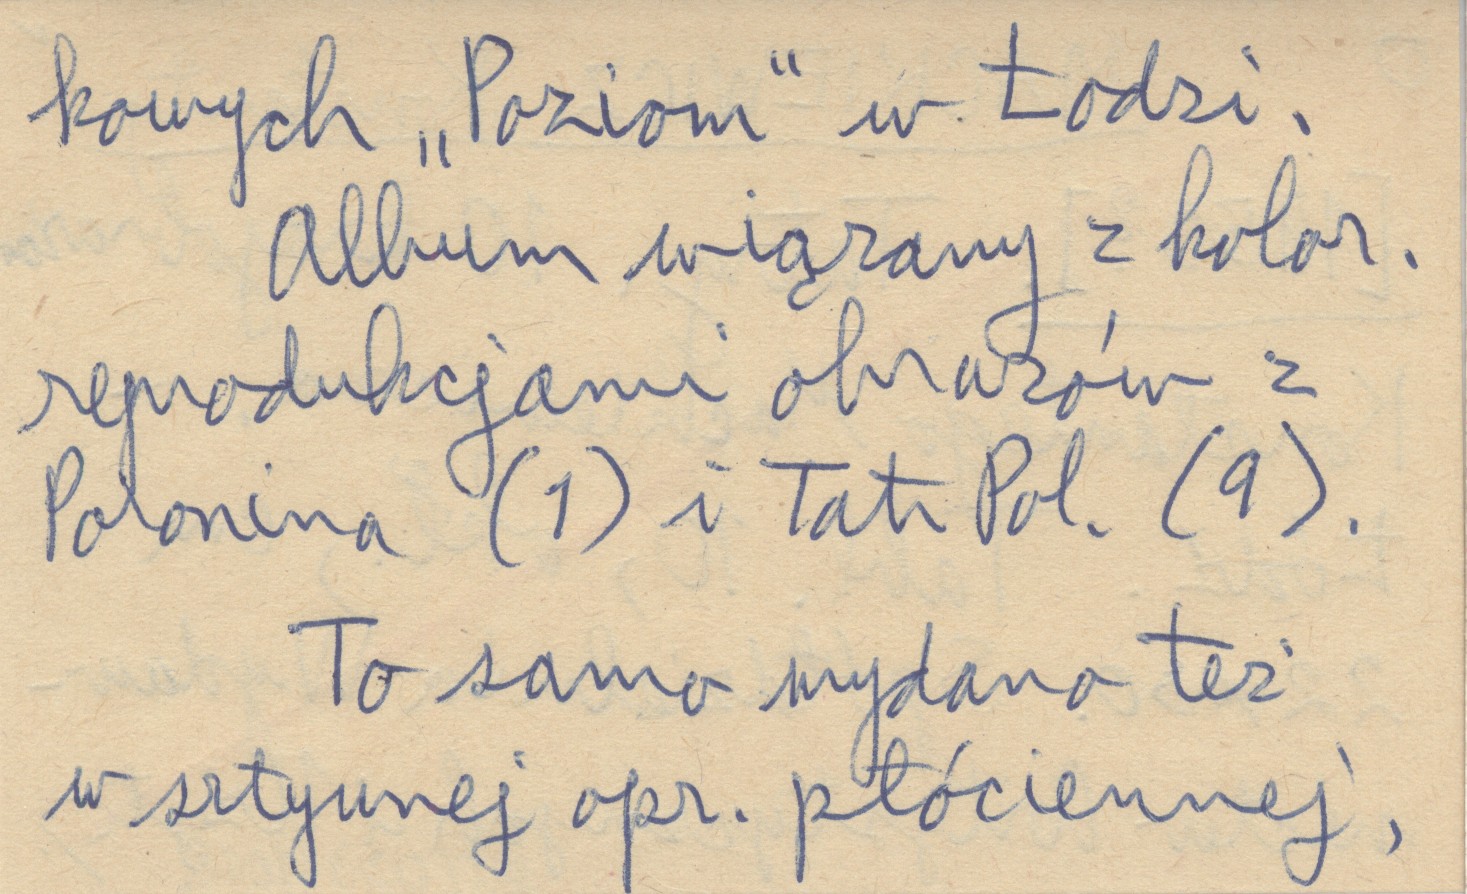 kowych „Poziom“ w Łodzi.
Album wiązany z kolor.
reprodukcjami obrazów z
Połonina (1) i Tatr Pol. (9).
To samo wydano też
w sztywnej opr. płóciennej,